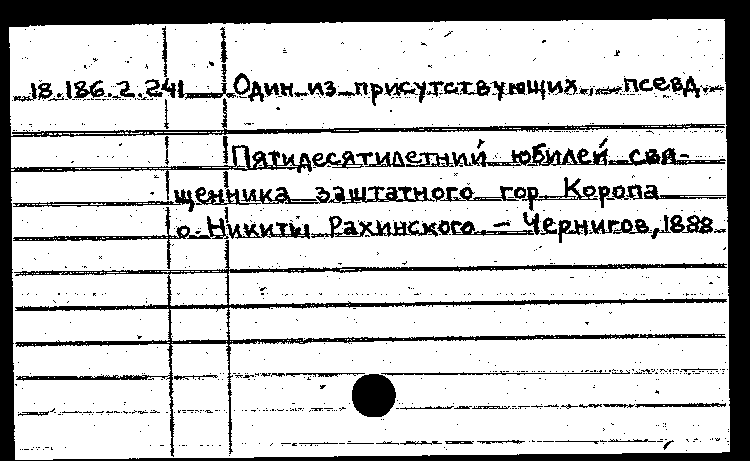 18.186.2.241 Один из присутствующих, псевд.
Пятидесятилетний юбилей свя-
щенника заштатного гор. Коропа
о. Никиты Рахинского. – Чернигов, 1888